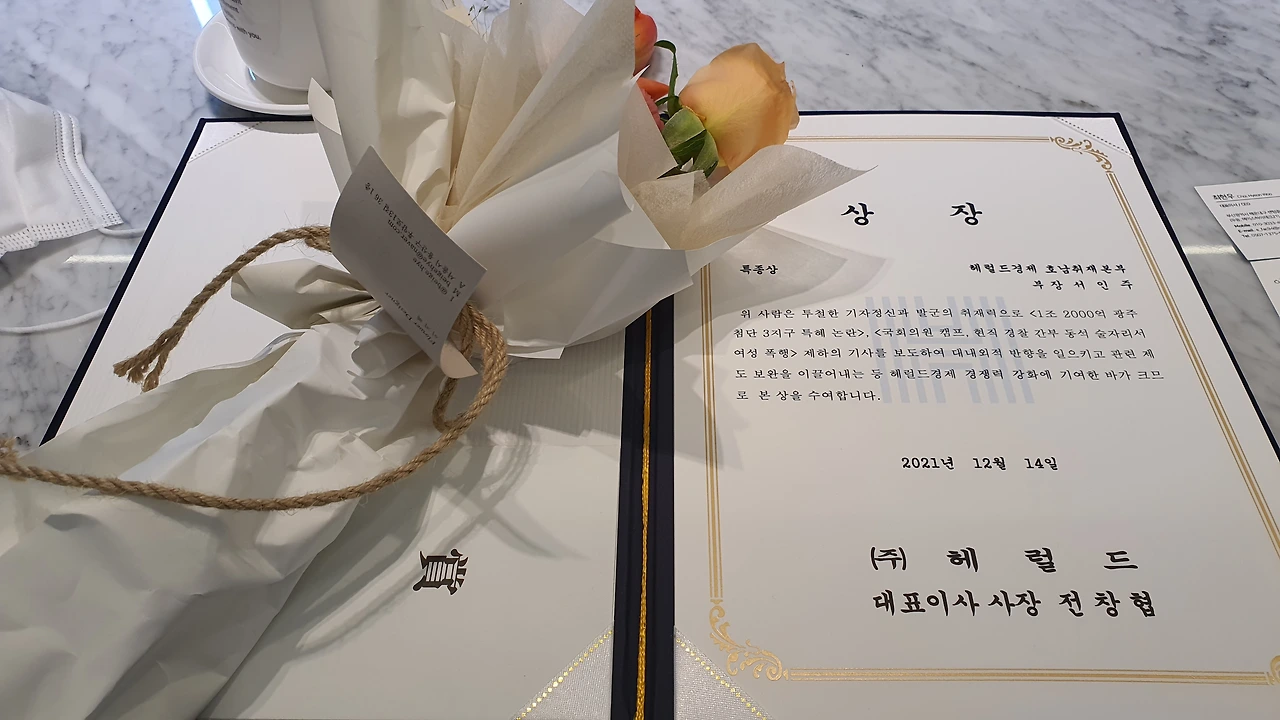 with you.
상 장
특종상
헤럴드경제 호남취재본부
부장 서 인 주
위 사람은 투철한 기자정신과 발군의 취재력으로 <1조 2000억 광주
첨단 3지구 특혜 논란>, <국회의원 캠프, 현직 경찰 간부 동석 술자리서
여성 폭행> 제하의 기사를 보도하여 대내외적 반향을 일으키고 관련 제
도 보완을 이끌어내는 등 헤럴드경제 경쟁력 강화에 기여한 바가 크므
로 본 상을 수여합니다.
2021년 12월 14일
(주) 헤 럴 드
대표이사 사장 전 창 협
賞
최현우
대표이사 / 대장
Mobile
E-mail
Tel